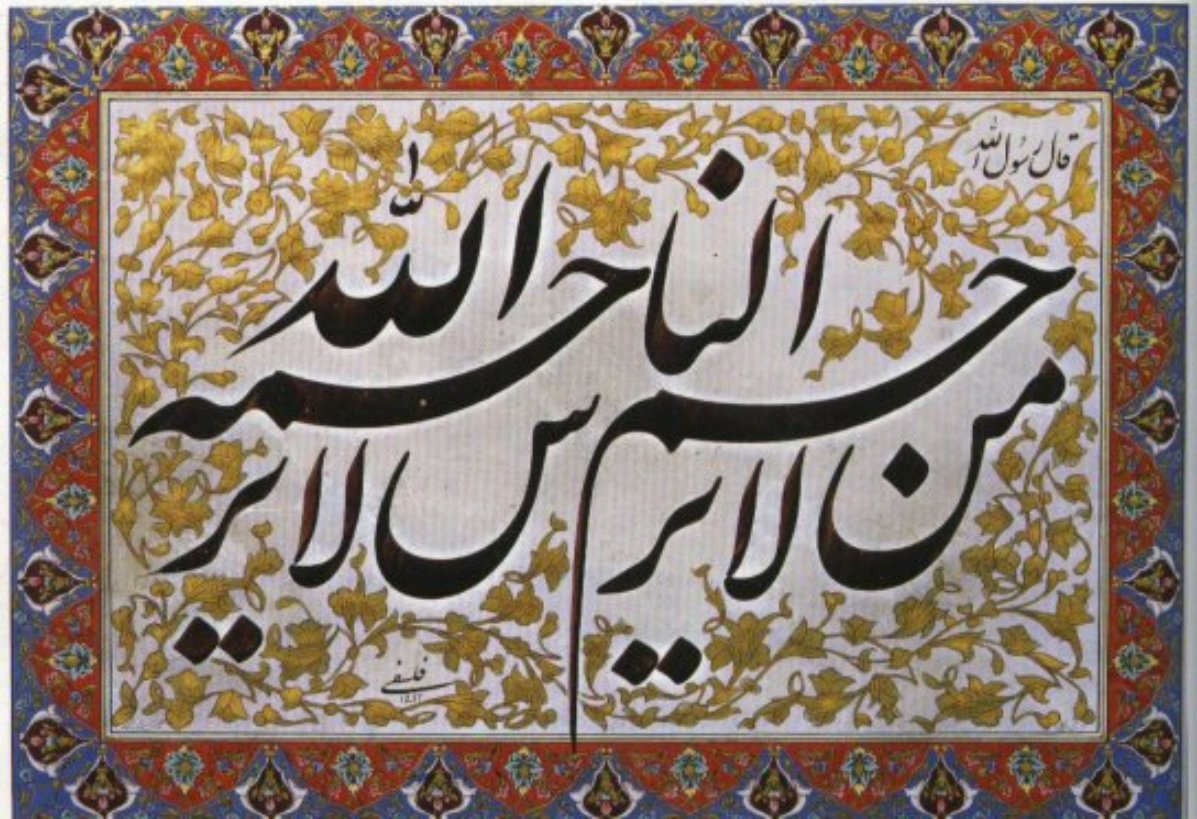 قال رسُول الله
من لا يرحم الناس لا يرحمه اللّه
فلسفی